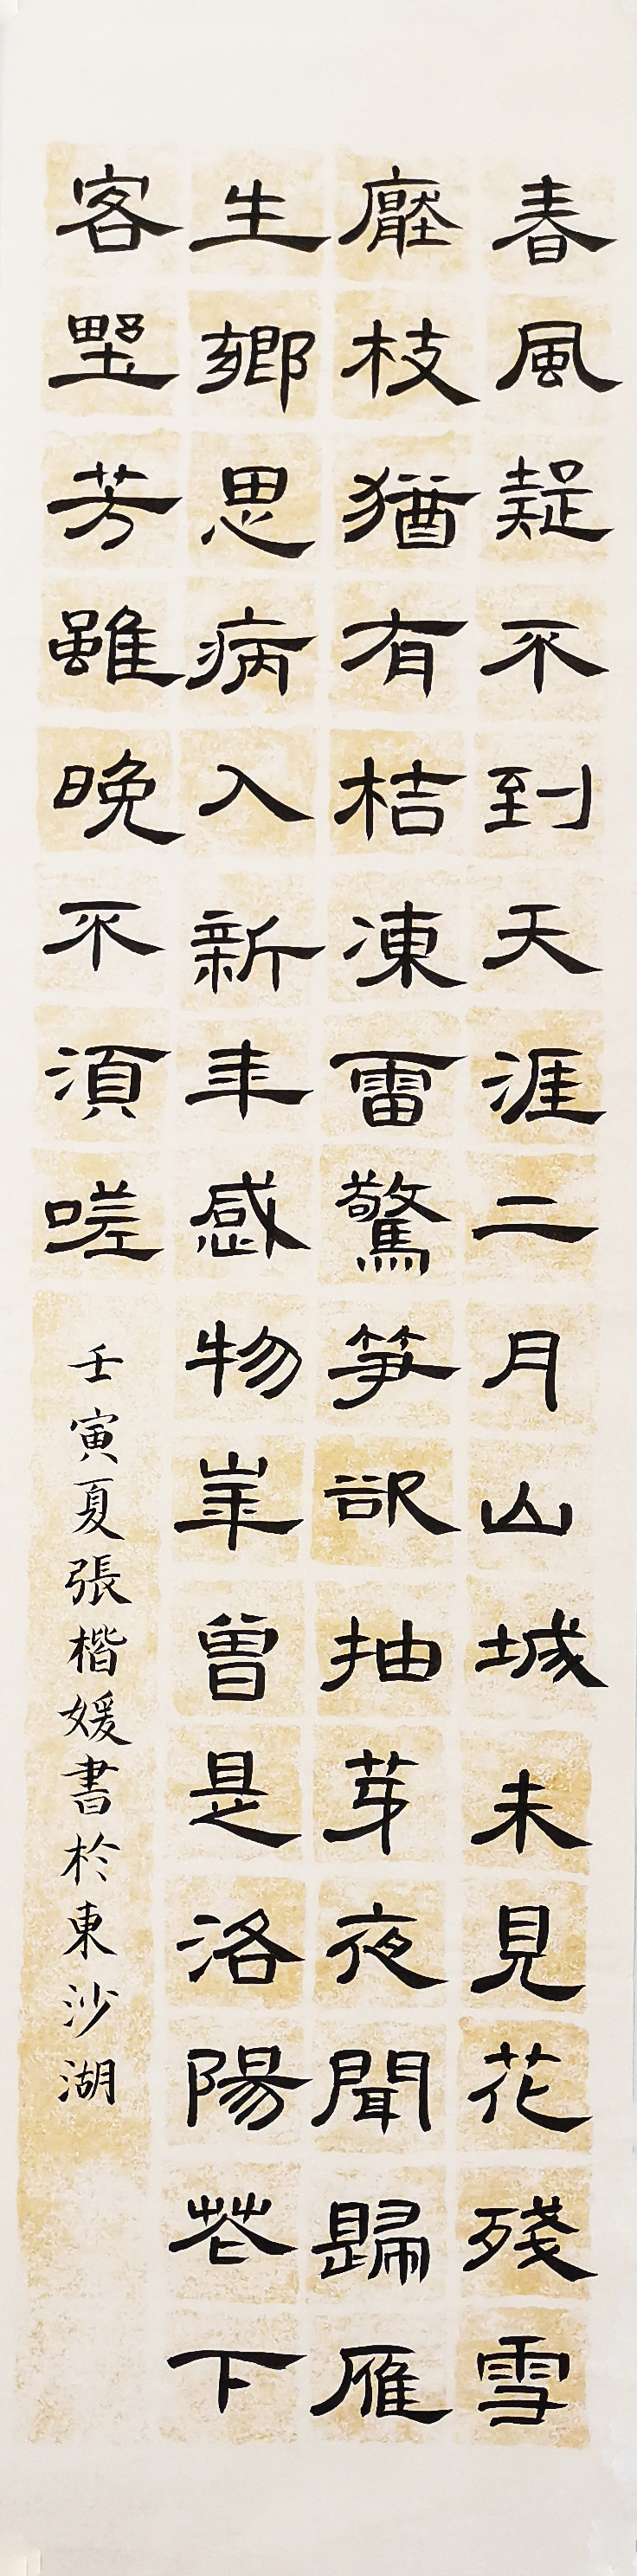 春風疑不到天涯二月山城未見花殘雪
壓枝猶有桔凍雷驚笋欲抽芽夜聞歸雁
生鄉思病入新年感物華曾是洛陽花下
客野芳雖晚不須嗟
壬寅夏張楷媛書於東沙湖